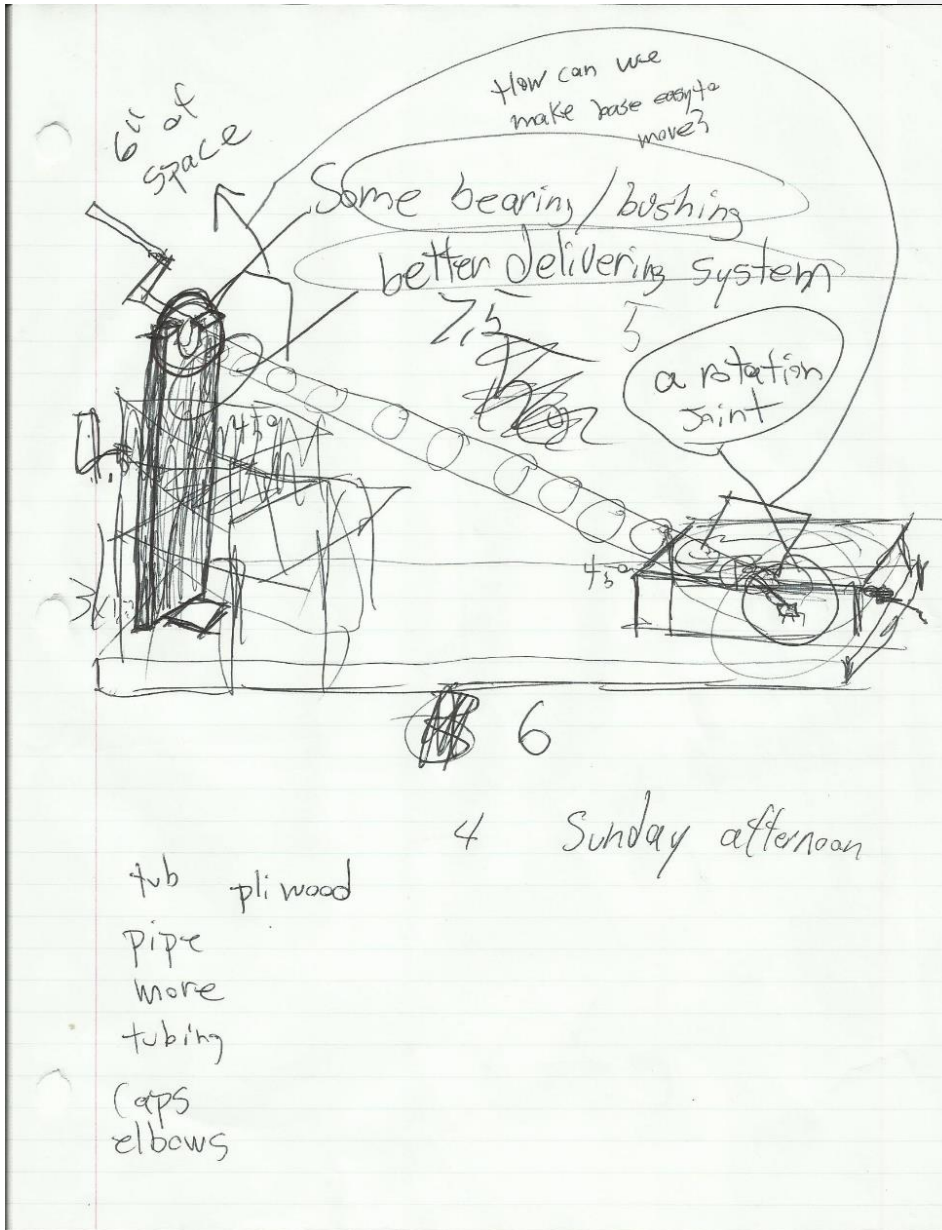 How can we
make base easy to
move?
6" of
space
Some bearing/bushing
better delivering system
7.5
5
a rotation
joint
45°
45°
6
4 Sunday afternoon
tub pliwood
pipe
more
tubing
Caps
elbows